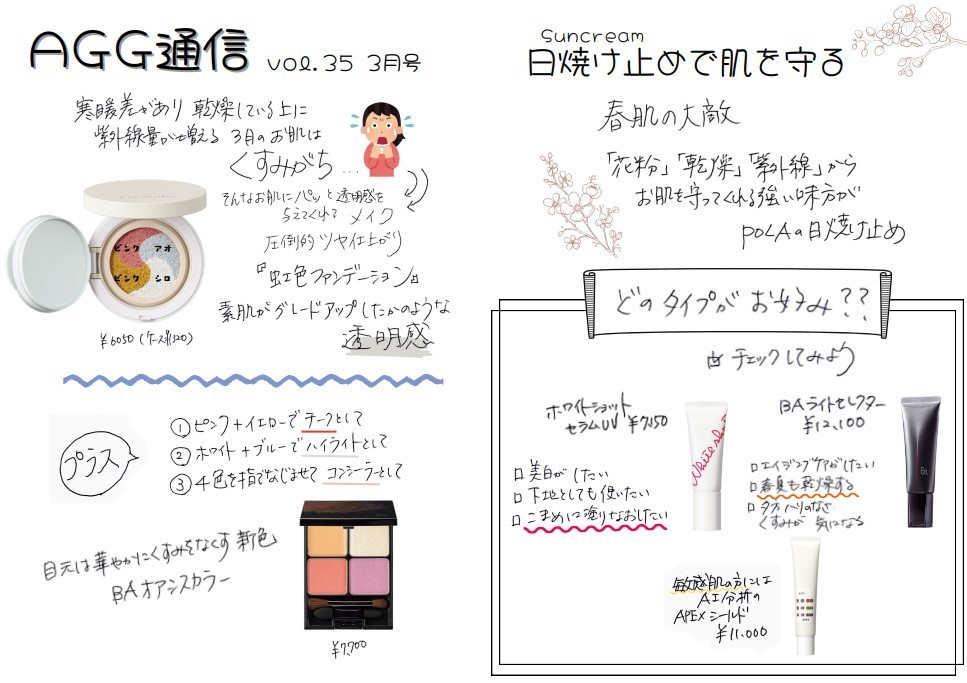 AGG通信 vol.35 3月号
寒暖差があり 乾燥している上に
紫外線量が増える 3月のお肌は
くすみがち…
そんなお肌にパッと透明感を
与えてくれる メイク
圧倒的 ツヤ仕上がり
『虹色ファンデーション』
素肌がグレードアップしたかのような
透明感
ピンク アオ
ピンク シロ
¥6050
プラス
① ピンク+イエローで チークとして
② ホワイト+ブルーで ハイライトとして
③ 4色を指でなじませて コンシーラーとして
目元は華やかにくすみをなくす 新色
BAオアシスカラー
¥7,700
Suncream
日焼け止めで肌を守る
春肌の大敵
「花粉」「乾燥」「紫外線」から
お肌を守ってくれる強い味方が
POLAの日焼け止め
どのタイプが お好み??
チェックしてみよう
ホワイトショット
セラムUV ¥7,150
White shot
□ 美白がしたい
□ 下地としても使いたい
□ こまめに塗りなおしたい
BAライトセレクター
¥12,100
BA
□ エイジングケアがしたい
□ 春夏も乾燥する
□ 夕方ハリのなさ
くすみが 気になる
敏感肌の方には
AI分析の
APEXシールド
¥11,000